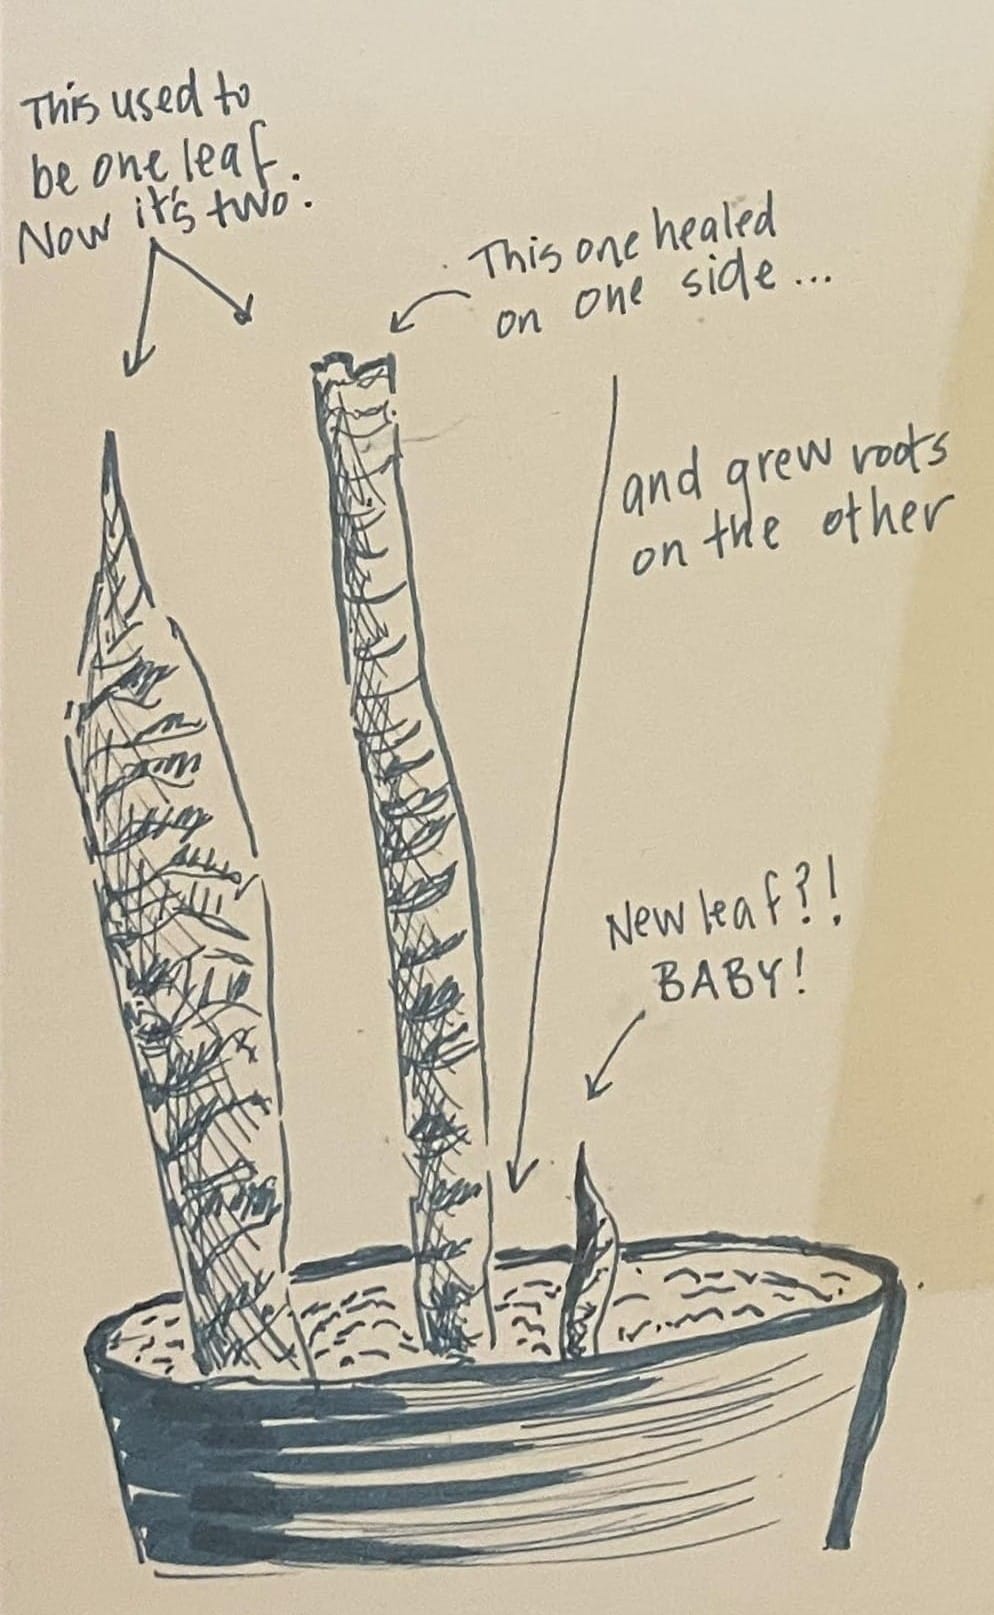 This used to
be one leaf.
Now it's two.
This one healed
on one side...
and grew roots
on the other
New leaf?!
BABY!